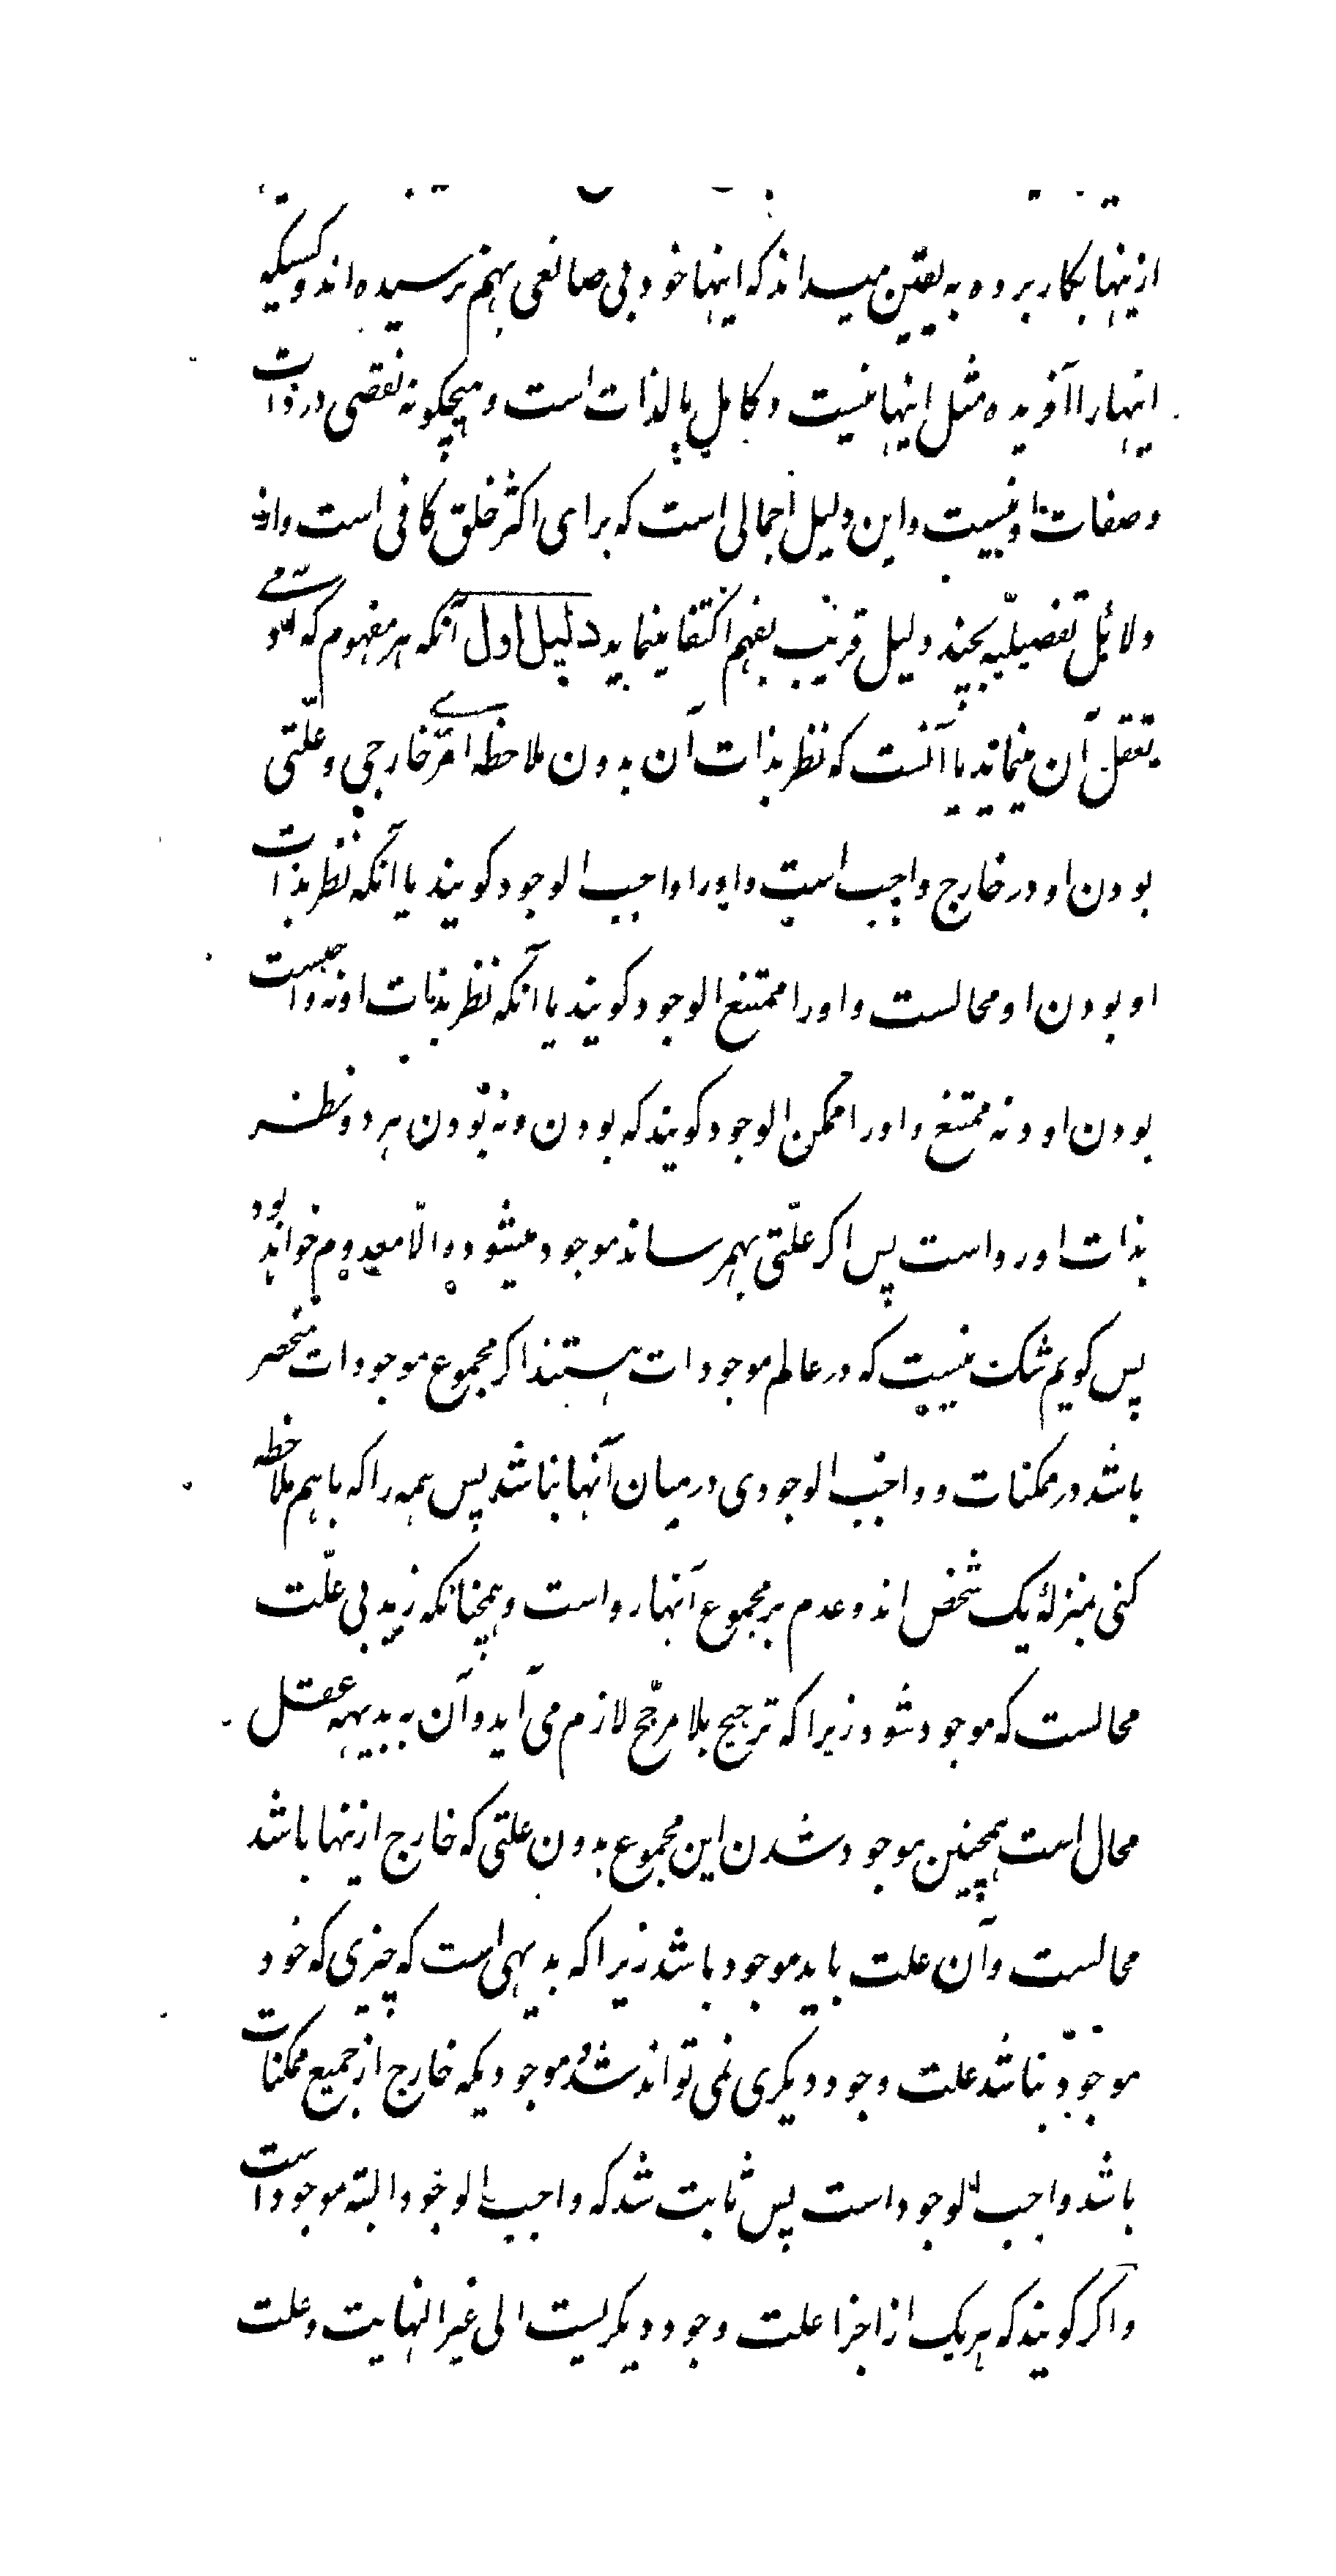 ازینها بکار برده به یقین میداند که اینها خود بی صانعی بهم نرسیده اند و کسیکه
اینها را آفریده مثل اینها نیست و کامل بالذات است و هیچگونه نقصی در ذات
و صفات او نیست و این دلیل اجمالی است که برای اکثر خلق کافی است و از
دلائل تفصیلیّه بچند دلیل قریب بفهم اکتفا مینماید دلیل اول آنکه هر مفهوم که آدمی
تعقل آن مینماید یا آنست که نظر بذات آن بدون ملاحظه امری خارجی و علّتی
بودن او در خارج واجب است و او را واجب الوجود گویند یا آنکه نظر بذات
او بودن او محالست و او را ممتنع الوجود گویند یا آنکه نظر بذات او نه واجبست
بودن او و نه ممتنع و او را ممکن الوجود گویند که بودن و نه بودن هر دو نظر
بذات او رواست پس اگر علّتی بهمرساند موجود میشود و الّا معدوم خواهد بود
پس گویم شک نیست که در عالم موجودات هستند اگر مجموع موجودات منحصر
باشد در ممکنات و واجب الوجودی در میان آنها نباشد پس همه را که باهم ملاحظه
کنی بمنزلهٔ یک شخص اند و عدم بر مجموع آنها رواست و همچنانکه زید بی علّت
محالست که موجود شود زیرا که ترجیح بلا مرجّح لازم می آید و آن به بدیهه عقل
محال است همچنین موجود شدن این مجموع بدون علتی که خارج ازینها باشد
محالست و آن علت باید موجود باشد زیرا که بدیهی است که چیزی که خود
موجود نباشد علت وجود دیگری نمی تواند شد و موجودیکه خارج از جمیع ممکنات
باشد واجب الوجود است پس ثابت شد که واجب الوجود البته موجود است
و اگر گویند که هر یک از اجزا علت وجود دیگریست الی غیر النهایت و علت